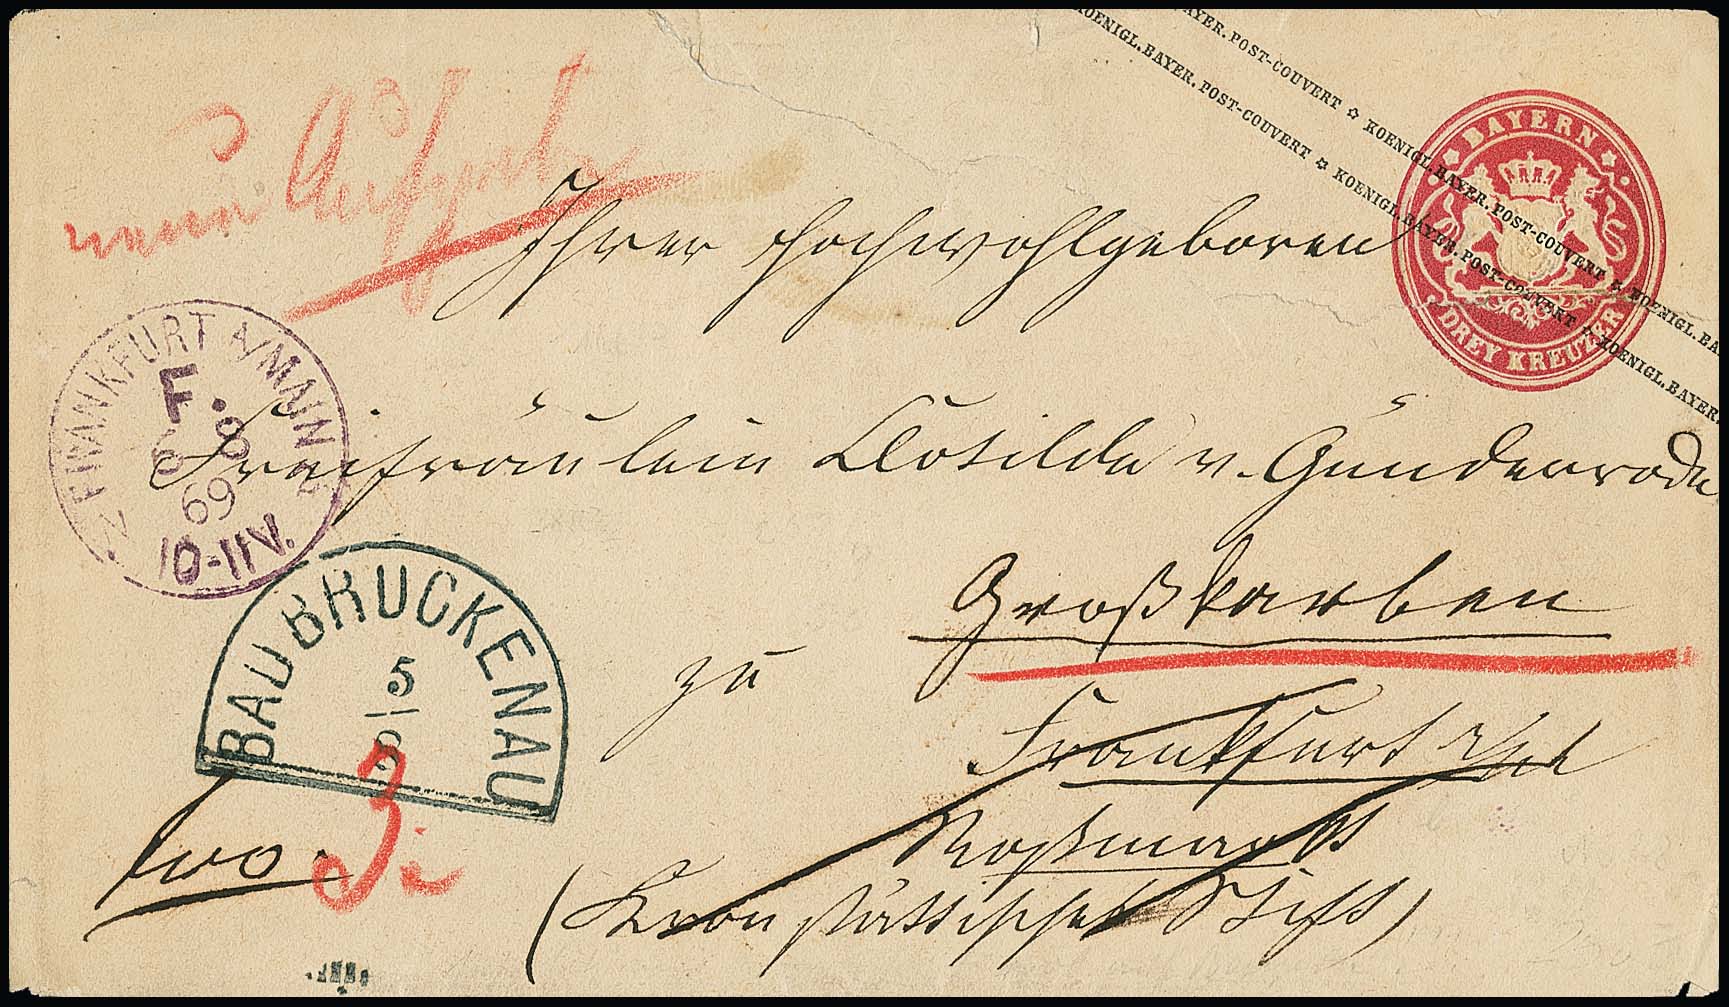 KOENIGL. BAYER. POST-COUVERT ✩ KOENIGL. BAYER. POST-COUVERT ✩ KOENIGL. BAYER.
BAYER. POST-COUVERT ✩ KOENIGL. BAYER. POST-COUVERT ✩ KOENIGL. BA
BAYERN
DREY KREUZER
Ihrer Hochwohlgeboren
FRANKFURT A/MAIN
F.
8
69
10-11 V.
Freifräulein Clotilde v. Günderrode
Großkarben
zu
BAD BRÜCKENAU
5
8
3
Frankfurt a/M
fro.
Roßmarkt
(Kronstättisches Stift)